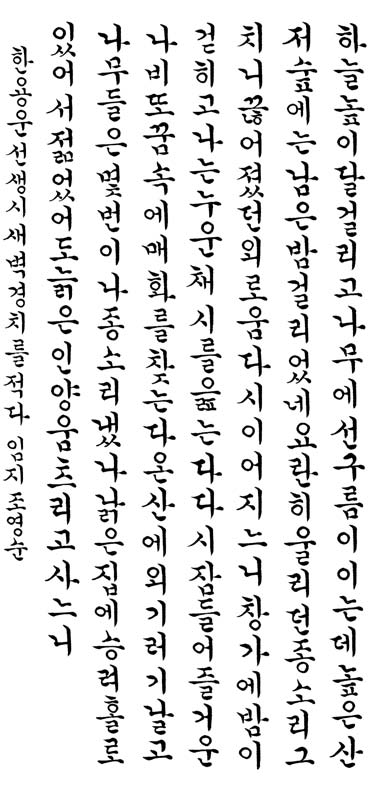 하늘높이달걸리고나무에선구름이이는데높은산
저숲에는남은밤걸리었네요란히울리던종소리그
치니끊어졌던외로움다시이어지느니창가에밤이
걷히고나는누운채시를읊는다다시잠들어즐거운
나비또꿈속에매화를찾는다온산에외기러기날고
나무들은몇번이나종소리냈나낡은집에승려홀로
있어서젊었어도늙은인양움츠리고사느니
한용운선생시새벽경치를적다 임지조영순